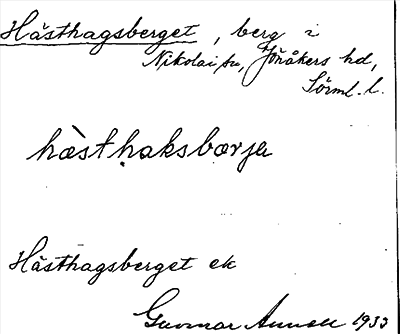 Hästhagsberget, berg i
Nikolai sn, Jönåkers hd,
Sörml. l.
hàsthaksbærja
Hästhagsberget ek
Gunnar 1933